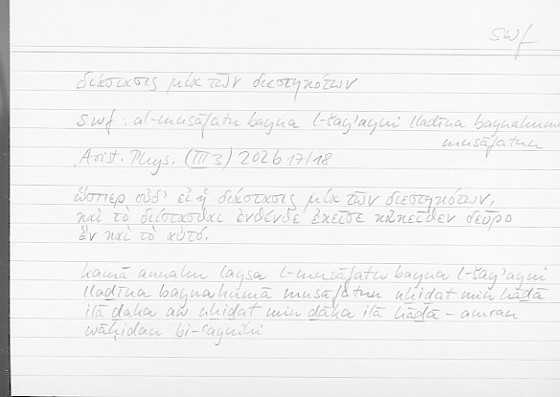 swf
διάστασις μία τῶν διεστηκότων
swf : al-musāfatu bayna l-šay'ayni lladīna baynahumā
musāfatun
Arist. Phys. (III 3) 202b 17/18
ὥσπερ οὐδ' εἰ ἡ διάστασις μία τῶν διεστηκότων,
καὶ τὸ διίστασθαι ἐνθένδε ἐκεῖσε κἀκεῖθεν δεῦρο
ἓν καὶ τὸ αὐτό.
kamā annahu laysa l-musāfatu bayna l-šay'ayni
lladīna baynahumā musāfatun uḫidat min hādā
ilā dāka aw uḫidat min dāka ilā hādā - amran
wāḥidan bi-ʿaynihi